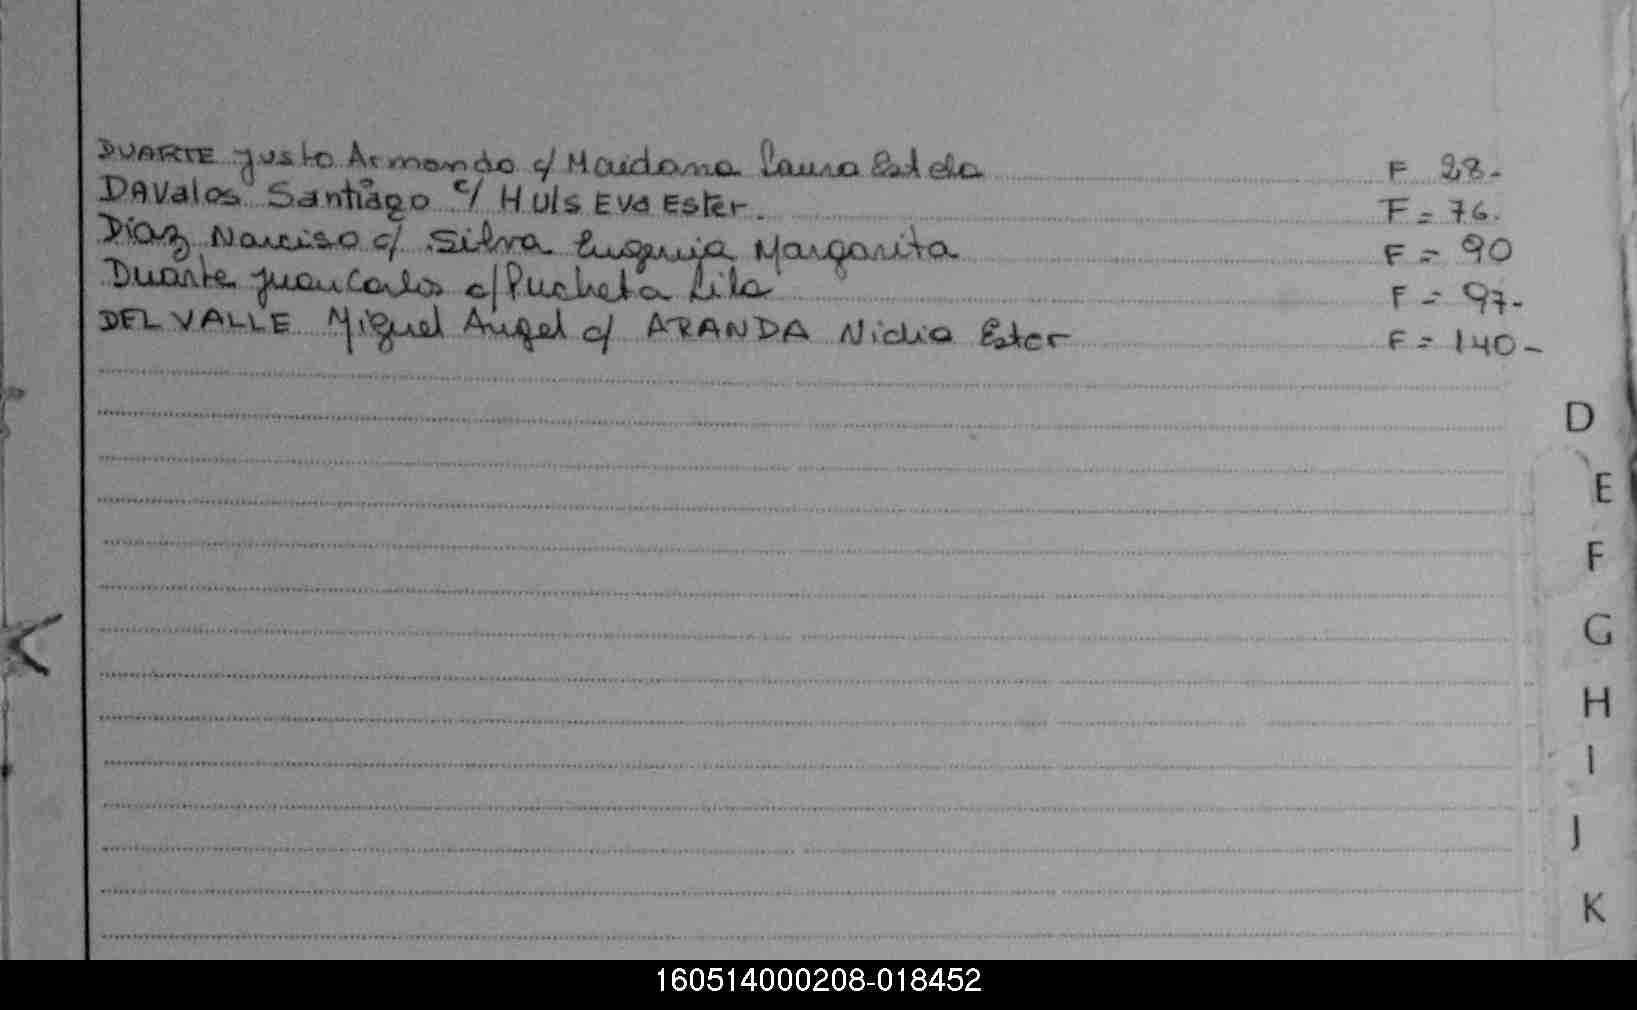 DUARTE Justo Armando c/ Maidana Laura Estela F 28-
DAValos Santiago c/ Huls Eva Ester. F = 76.
Diaz Narciso c/ Silva Eugenia Margarita F = 90
Duarte Juan Carlos c/ Pucheta Lila F = 97-
DEL VALLE Miguel Angel c/ ARANDA Nidia Ester F = 140-
D
E
F
G
H
I
J
K
160514000208-018452